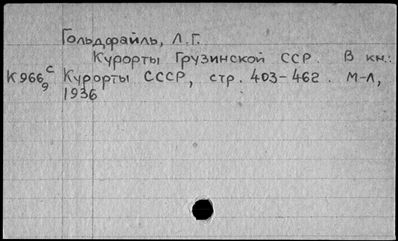 Гольдфайль, Л.Г.
Курорты Грузинской ССР. В кн.:
К966 с 9 Курорты СССР, стр. 403-462. М-Л,
1936